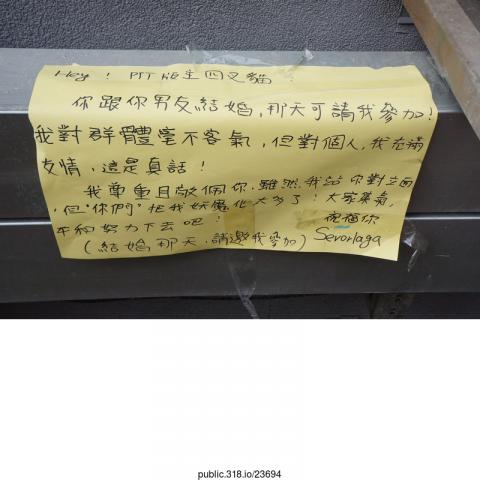 Hey! PTT 版主四叉貓
你跟你男友結婚,那天可請我參加!
我對群體毫不客氣,但對個人,我充滿
友情,這是真話!
我尊重且敬佩你,雖然我站你對立面
,但"你們"把我妖魔化太多了!大家
平和努力下去吧! 祝福你
(結婚那天,請邀我參加) Sevorlaga
public.318.io/23694